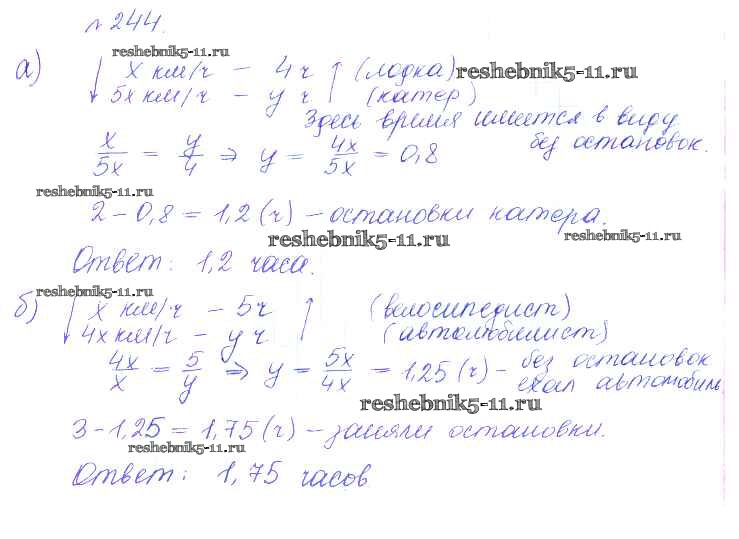 № 244.
reshebnik5-11.ru
а) ↓ х км/ч – 4 ч ↑ (лодка) reshebnik5-11.ru
5х км/ч – у ч (катер)
Здесь время имеется в виду
без остановок.
х/5х = у/4 ⇒ у = 4х/5х = 0,8
reshebnik5-11.ru
2 – 0,8 = 1,2 (ч) – остановки катера.
reshebnik5-11.ru reshebnik5-11.ru
Ответ: 1,2 часа.
reshebnik5-11.ru
б) ↓ х км/ч – 5 ч ↑ (велосипедист)
4х км/ч – у ч (автомобилист)
4х/х = 5/у ⇒ у = 5х/4х = 1,25 (ч) – без остановок
ехал автомобиль
reshebnik5-11.ru
3 – 1,25 = 1,75 (ч) – заняли остановки.
reshebnik5-11.ru
Ответ: 1,75 часов